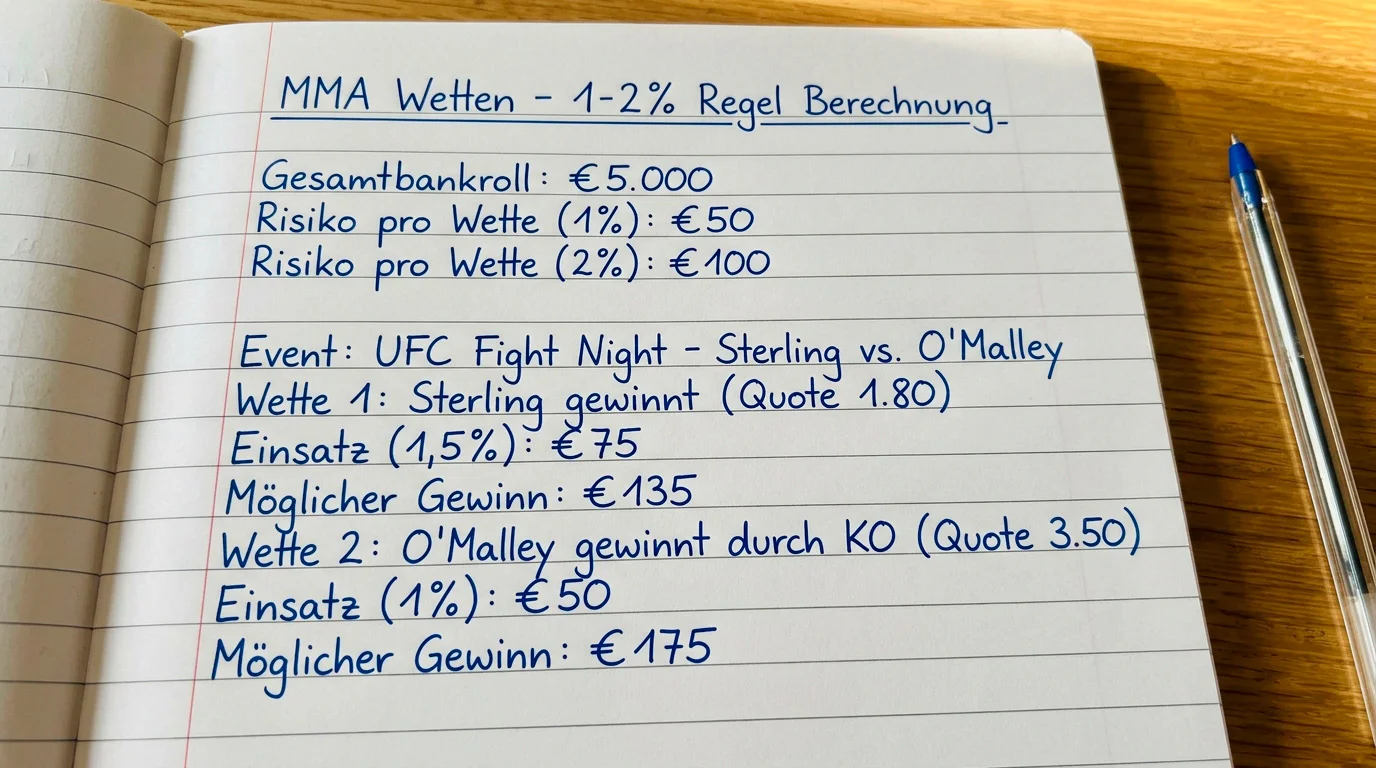 MMA Wetten - 1-2% Regel Berechnung
Gesamtbankroll: €5.000
Risiko pro Wette (1%): €50
Risiko pro Wette (2%): €100
Event: UFC Fight Night - Sterling vs. O'Malley
Wette 1: Sterling gewinnt (Quote 1.80)
Einsatz (1,5%): €75
Möglicher Gewinn: €135
Wette 2: O'Malley gewinnt durch KO (Quote 3.50)
Einsatz (1%): €50
Möglicher Gewinn: €175